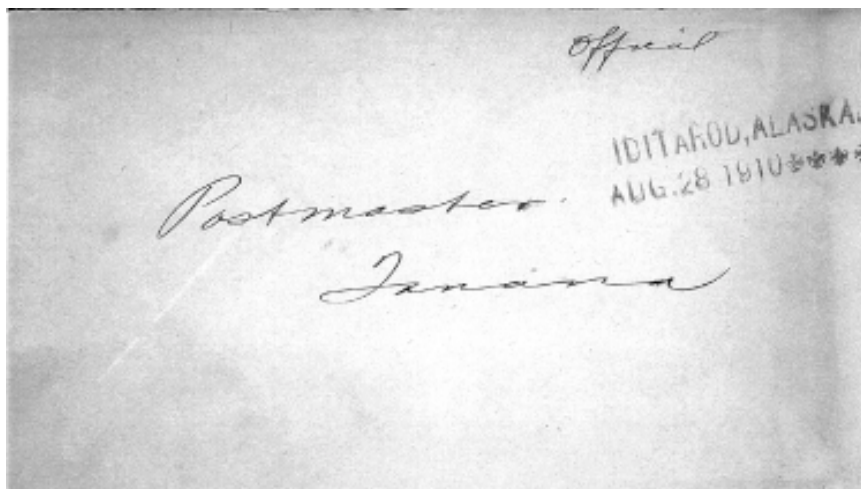 Official
IDITAROD, ALASKA.
AUG. 28 1910****
Postmaster.
Tanana